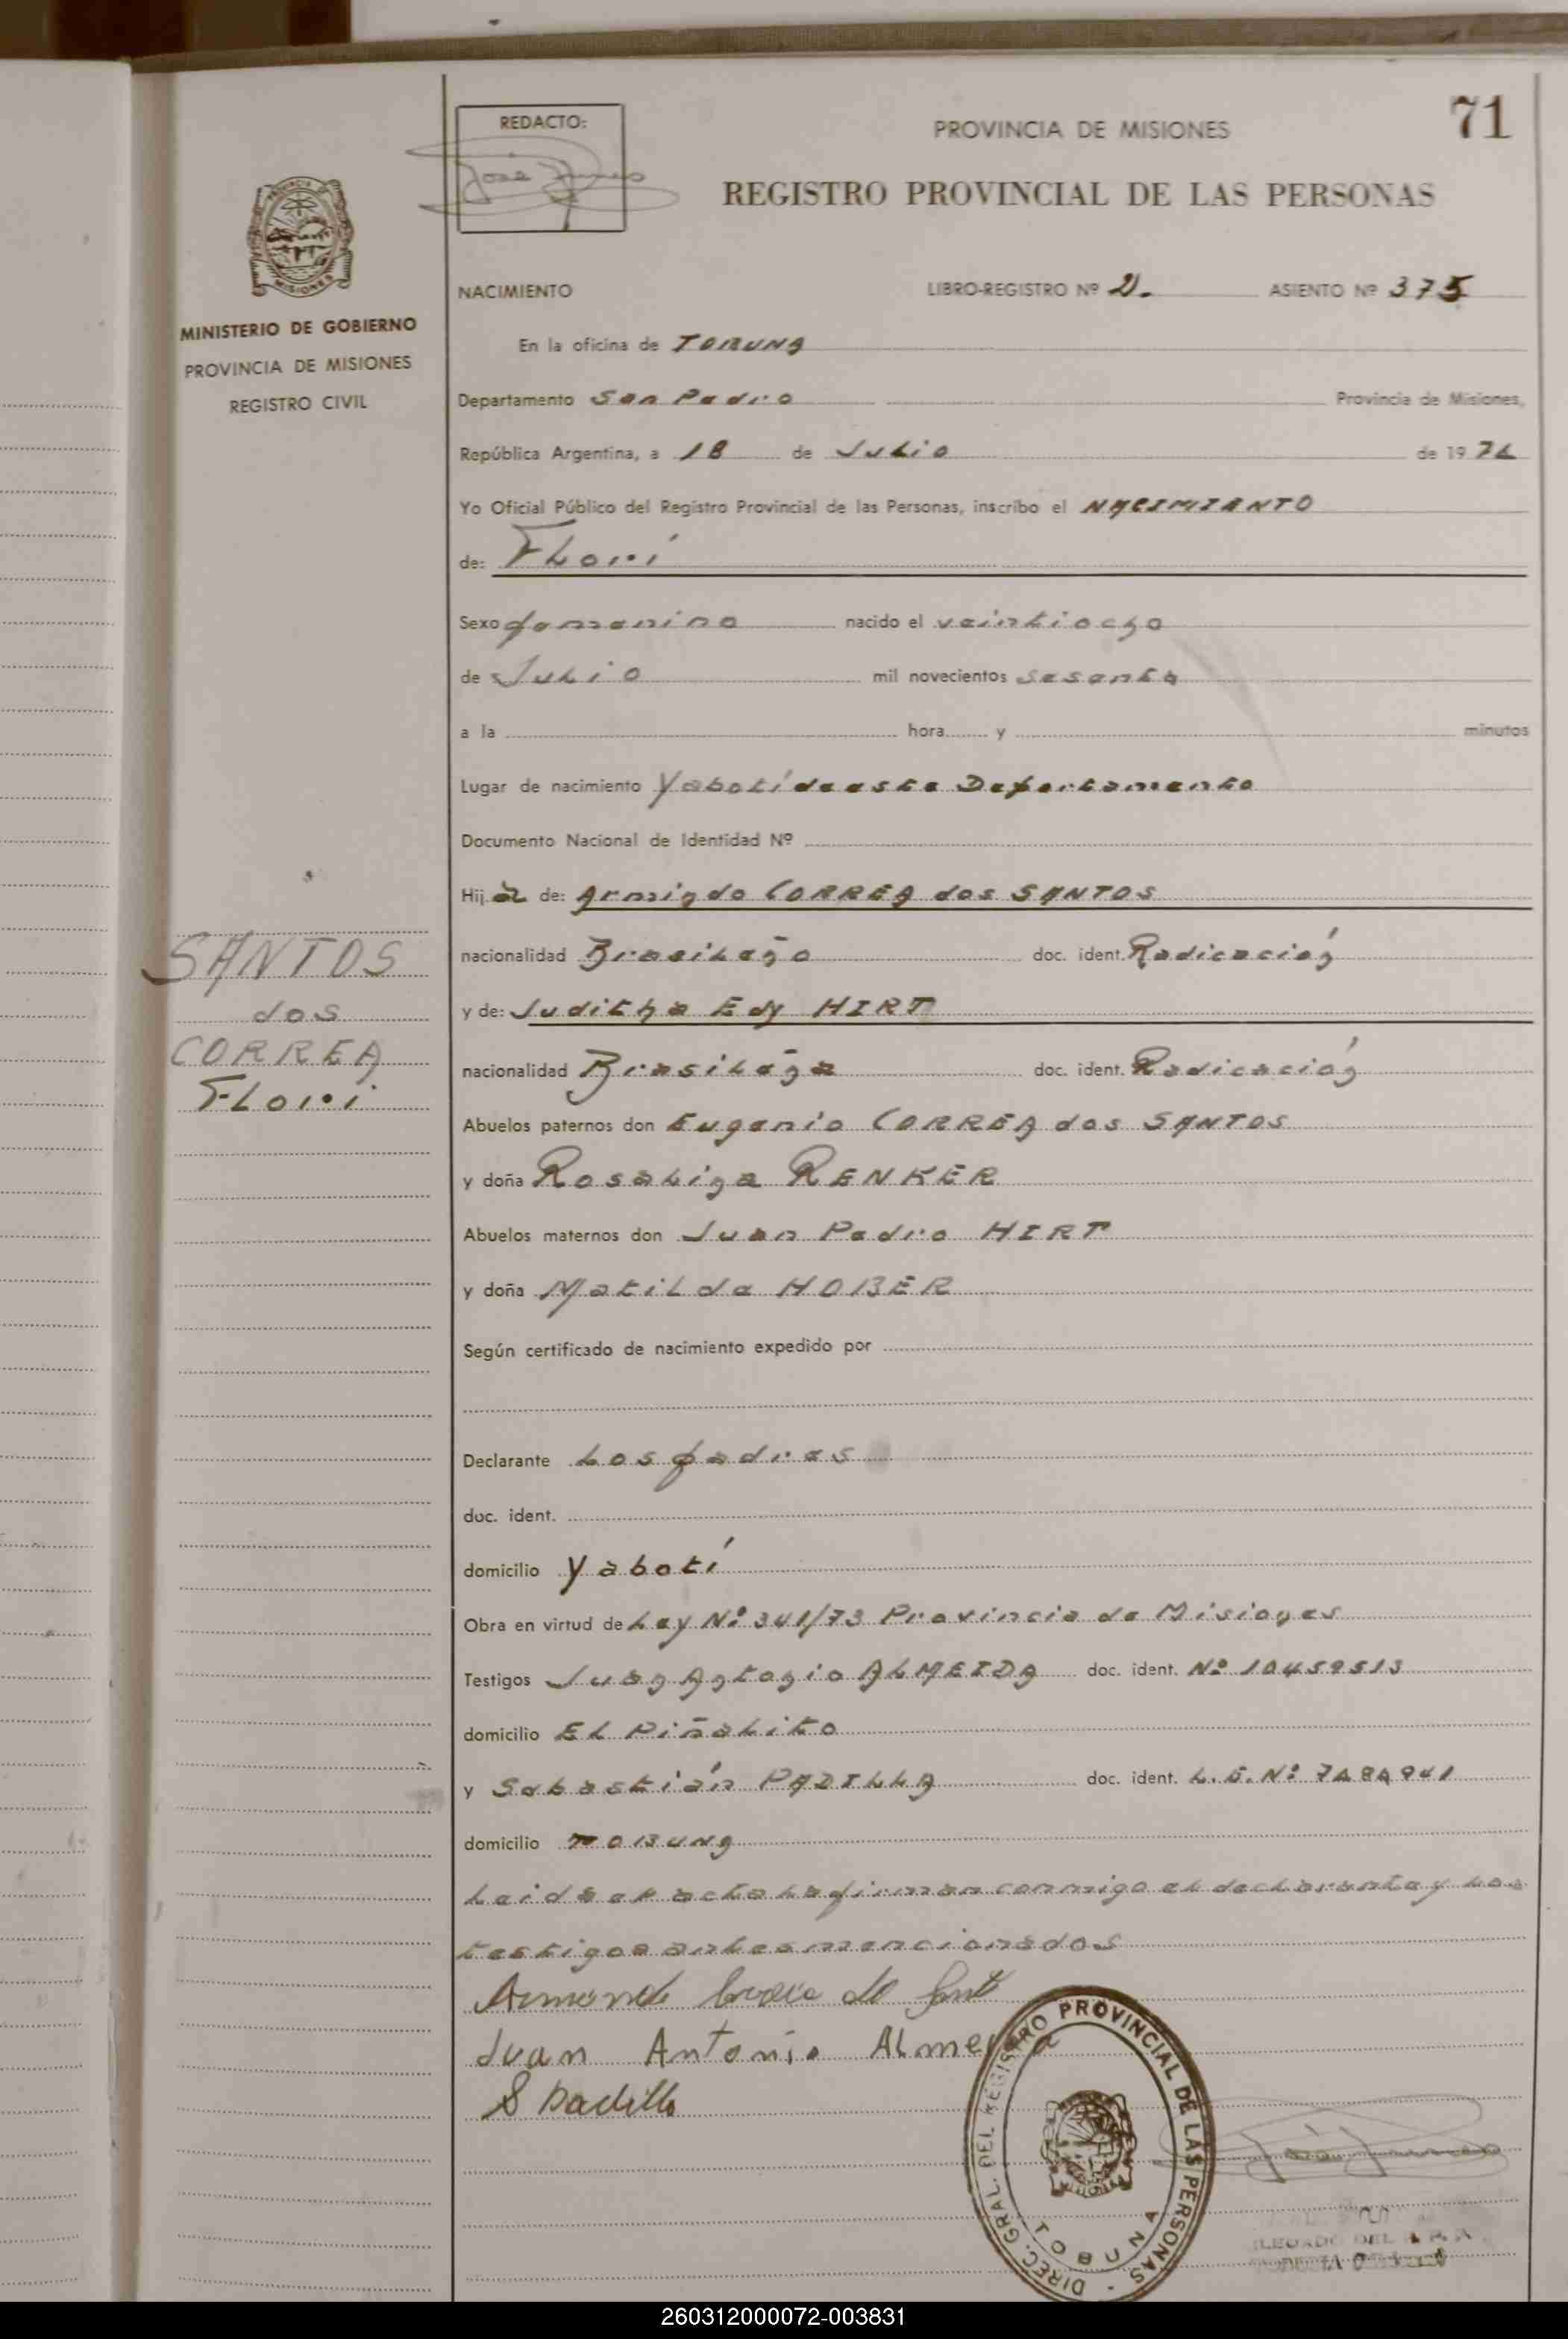 71
REDACTO:
PROVINCIA DE MISIONES
REGISTRO PROVINCIAL DE LAS PERSONAS
MISIONES
MINISTERIO DE GOBIERNO
PROVINCIA DE MISIONES
REGISTRO CIVIL
NACIMIENTO LIBRO-REGISTRO Nº 2. ASIENTO Nº 375
En la oficina de TOBUNA
Departamento San Pedro Provincia de Misiones,
República Argentina, a 18 de Julio de 19 74
Yo Oficial Público del Registro Provincial de las Personas, inscribo el NACIMIENTO
de: Florí
Sexo femenino nacido el veintiocho
de Julio mil novecientos sesenta
a la hora y minutos
Lugar de nacimiento Yabotí de este Departamento
Documento Nacional de Identidad Nº
Hij a de: Armindo CORREA dos SANTOS
nacionalidad Brasileño doc. ident. Radicación
y de: Juditha Edy HIRT
nacionalidad Brasileña doc. ident. Radicación
SANTOS
dos
CORREA
Florí
Abuelos paternos don Eugenio CORREA dos SANTOS
y doña Rosalina RENKER
Abuelos maternos don Juan Pedro HIRT
y doña Matilda HOBER
Según certificado de nacimiento expedido por
Declarante Los padres
doc. ident.
domicilio Yabotí
Obra en virtud de Ley Nº 341/73 Provincia de Misiones
Testigos Juan Antonio ALMEIDA doc. ident. Nº 10459513
domicilio EL Piñalito
y Sebastián PADILLA doc. ident. L.E. Nº
domicilio TOBUNA
Leida el acta la firman conmigo el declarante y los
testigos antes mencionados
Juan Antonio Almeida
S Padilla
DIREC. GRAL. DEL REGISTRO PROVINCIAL DE LAS PERSONAS
TOBUNA
260312000072-003831